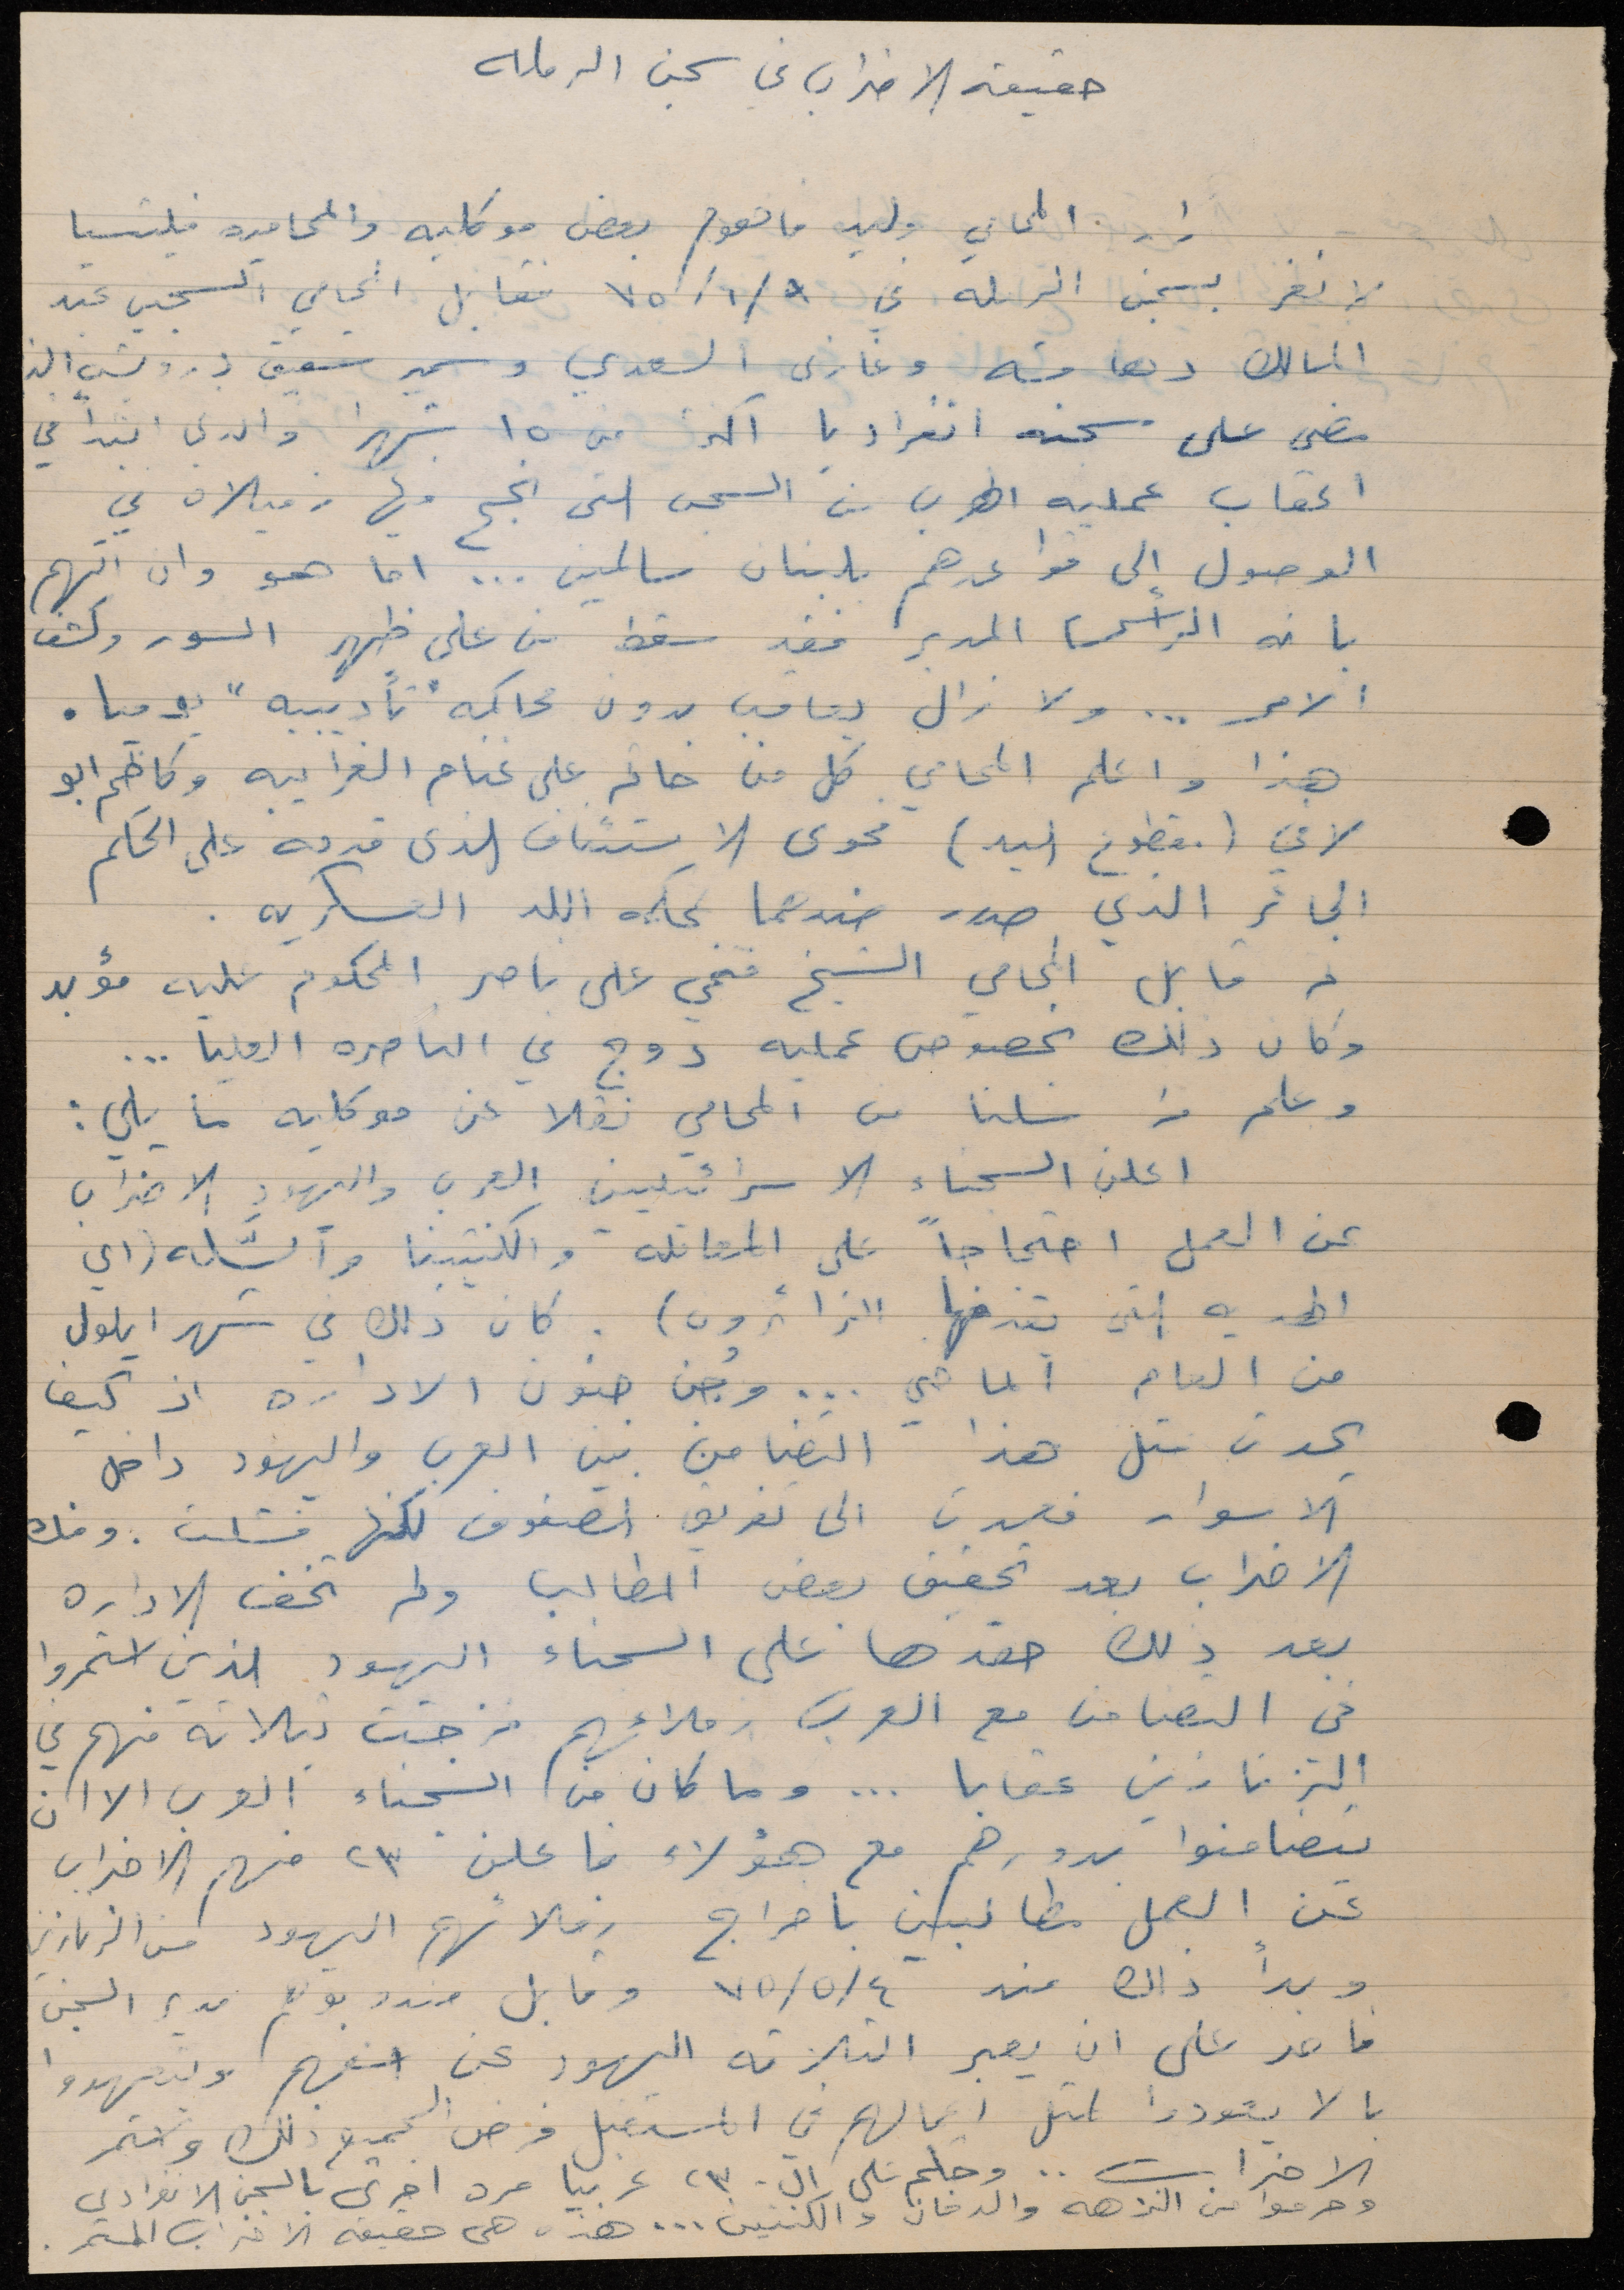 حقيقة الاضراب في سجن الرمله
زار المحامي وليد فاهوم بعض موكليه والمحاميه فيليتسيا
لانغر بسجن الرمله في ٧٥/٦/٩ فقابل المحامي السجين عبد
المالك دهامشه وغازي السعدي وسمير شفيق درويش الذي
مضى على سجنه انفراديا اكثر من ١٥ شهرا والذي ابتدأ في
اعقاب عمليه الهرب من السجن التي نجح فيها زميلان في
الوصول إلى قواعدهم بلبنان سالمين ... اما هو وان اتهم
بانه الرأس المدبر فقد سقط من على ظهر السور وكشف
الامر ... ولا زال يعاقب بدون محاكمه "تأديبيه" يوميا.
هذا واعلم المحامي كل من حاتم علي غنام الغرابيه وكاظم ابو
لافي (مقطوع اليد) فحوى الاستئناف الذي قدمه على الحكم
الجائر الذي صدر ضدهما بمحكمه اللد العسكريه.
ثم قابل المحامي الشيخ فتحي علي ناصر المحكوم عليه مؤبد
وكان ذلك بخصوص عمليه زواج في الناصره العليا ...
وعلم مراسلنا من المحامي نقلا عن موكليه ما يلي:
اعلن السجناء الاسرائيليين العرب واليهود الاضراب
عن العمل احتجاجاً على المعامله والكنتينا والسّله (اي
الهديه التي يقدمها الزائرون). كان ذلك في شهر ايلول
من العام الماضي ... وجُن جنون الاداره اذ كيف
يحدث مثل هذا التضامن بين العرب واليهود داخل
الاسوار فعمدت الى تفريق الصفوف لكنها فشلت. وفك
الاضراب بعد تحقيق بعض المطالب ولم تخف الاداره
بعد ذلك حقدها على السجناء اليهود الذين استمروا
في التضامن مع العرب زملائهم فزجت بثلاثة منهم في
الزنازين عقابا ... وما كان من السجناء العرب الا ان
يتضامنوا بدورهم مع هؤلاء فاعلن ٢٣ منهم الاضراب
عن العمل مطالبين باخراج زملائهم اليهود من الزنازين
وبدأ ذلك منذ ٧٥/٥/٤ وقابل مندوبوهم مدير السجن
فاصر على ان يعبر الثلاثه اليهود عن اسفهم ويتعهدوا
بالا يعودوا لمثل اعمالهم في المستقبل فرفض الجميع ذلك واستمر
الاضراب .. وحكم على الـ ٢٣ عربيا مره اخرى بالسجن الانفرادي
وحرموا من النزهه والدخان والكنتين ... هذه هي حقيقة الاضراب المستمر.